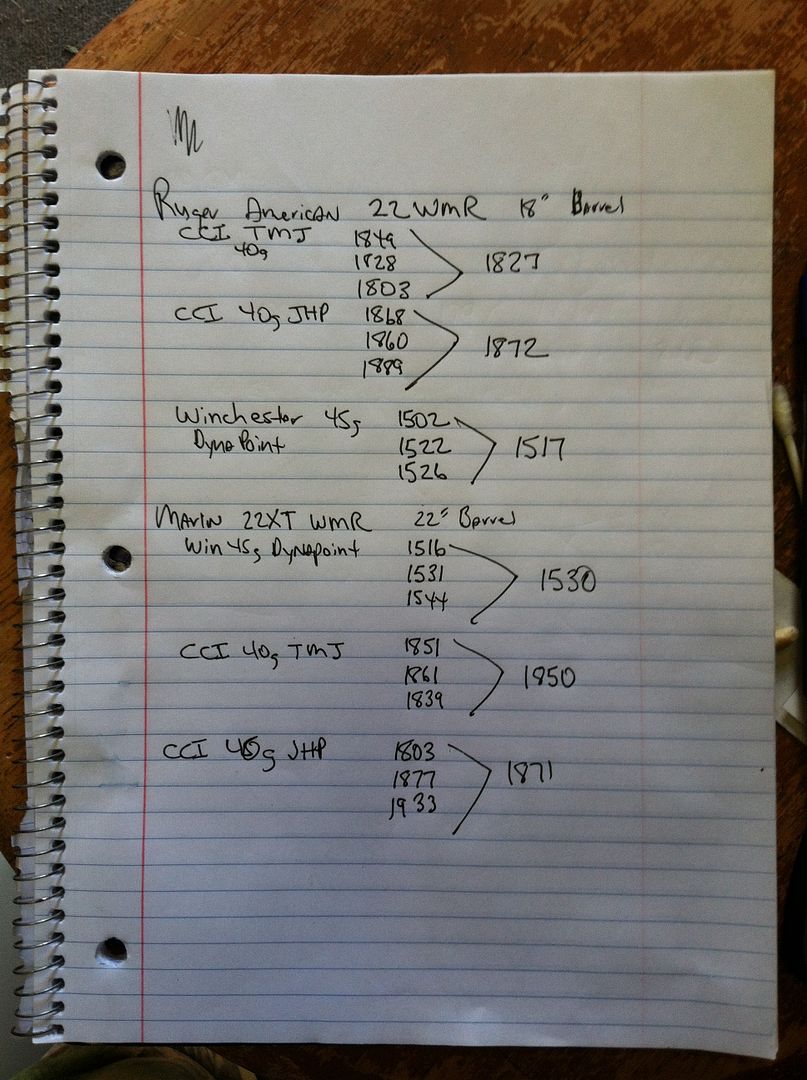 Ruger American 22 WMR 18" Barrel
CCI TMJ 1849
40g 1828 1827
1803
CCI 40g JHP 1868
1860 1872
1889
Winchester 45g 1502
DynaPoint 1522 1517
1526
Marlin 22XT WMR 22" Barrel
Win 45g Dynapoint 1516
1531 1530
1544
CCI 40g TMJ 1851
1861 1850
1839
CCI 40g JHP 1803
1877 1871
1933